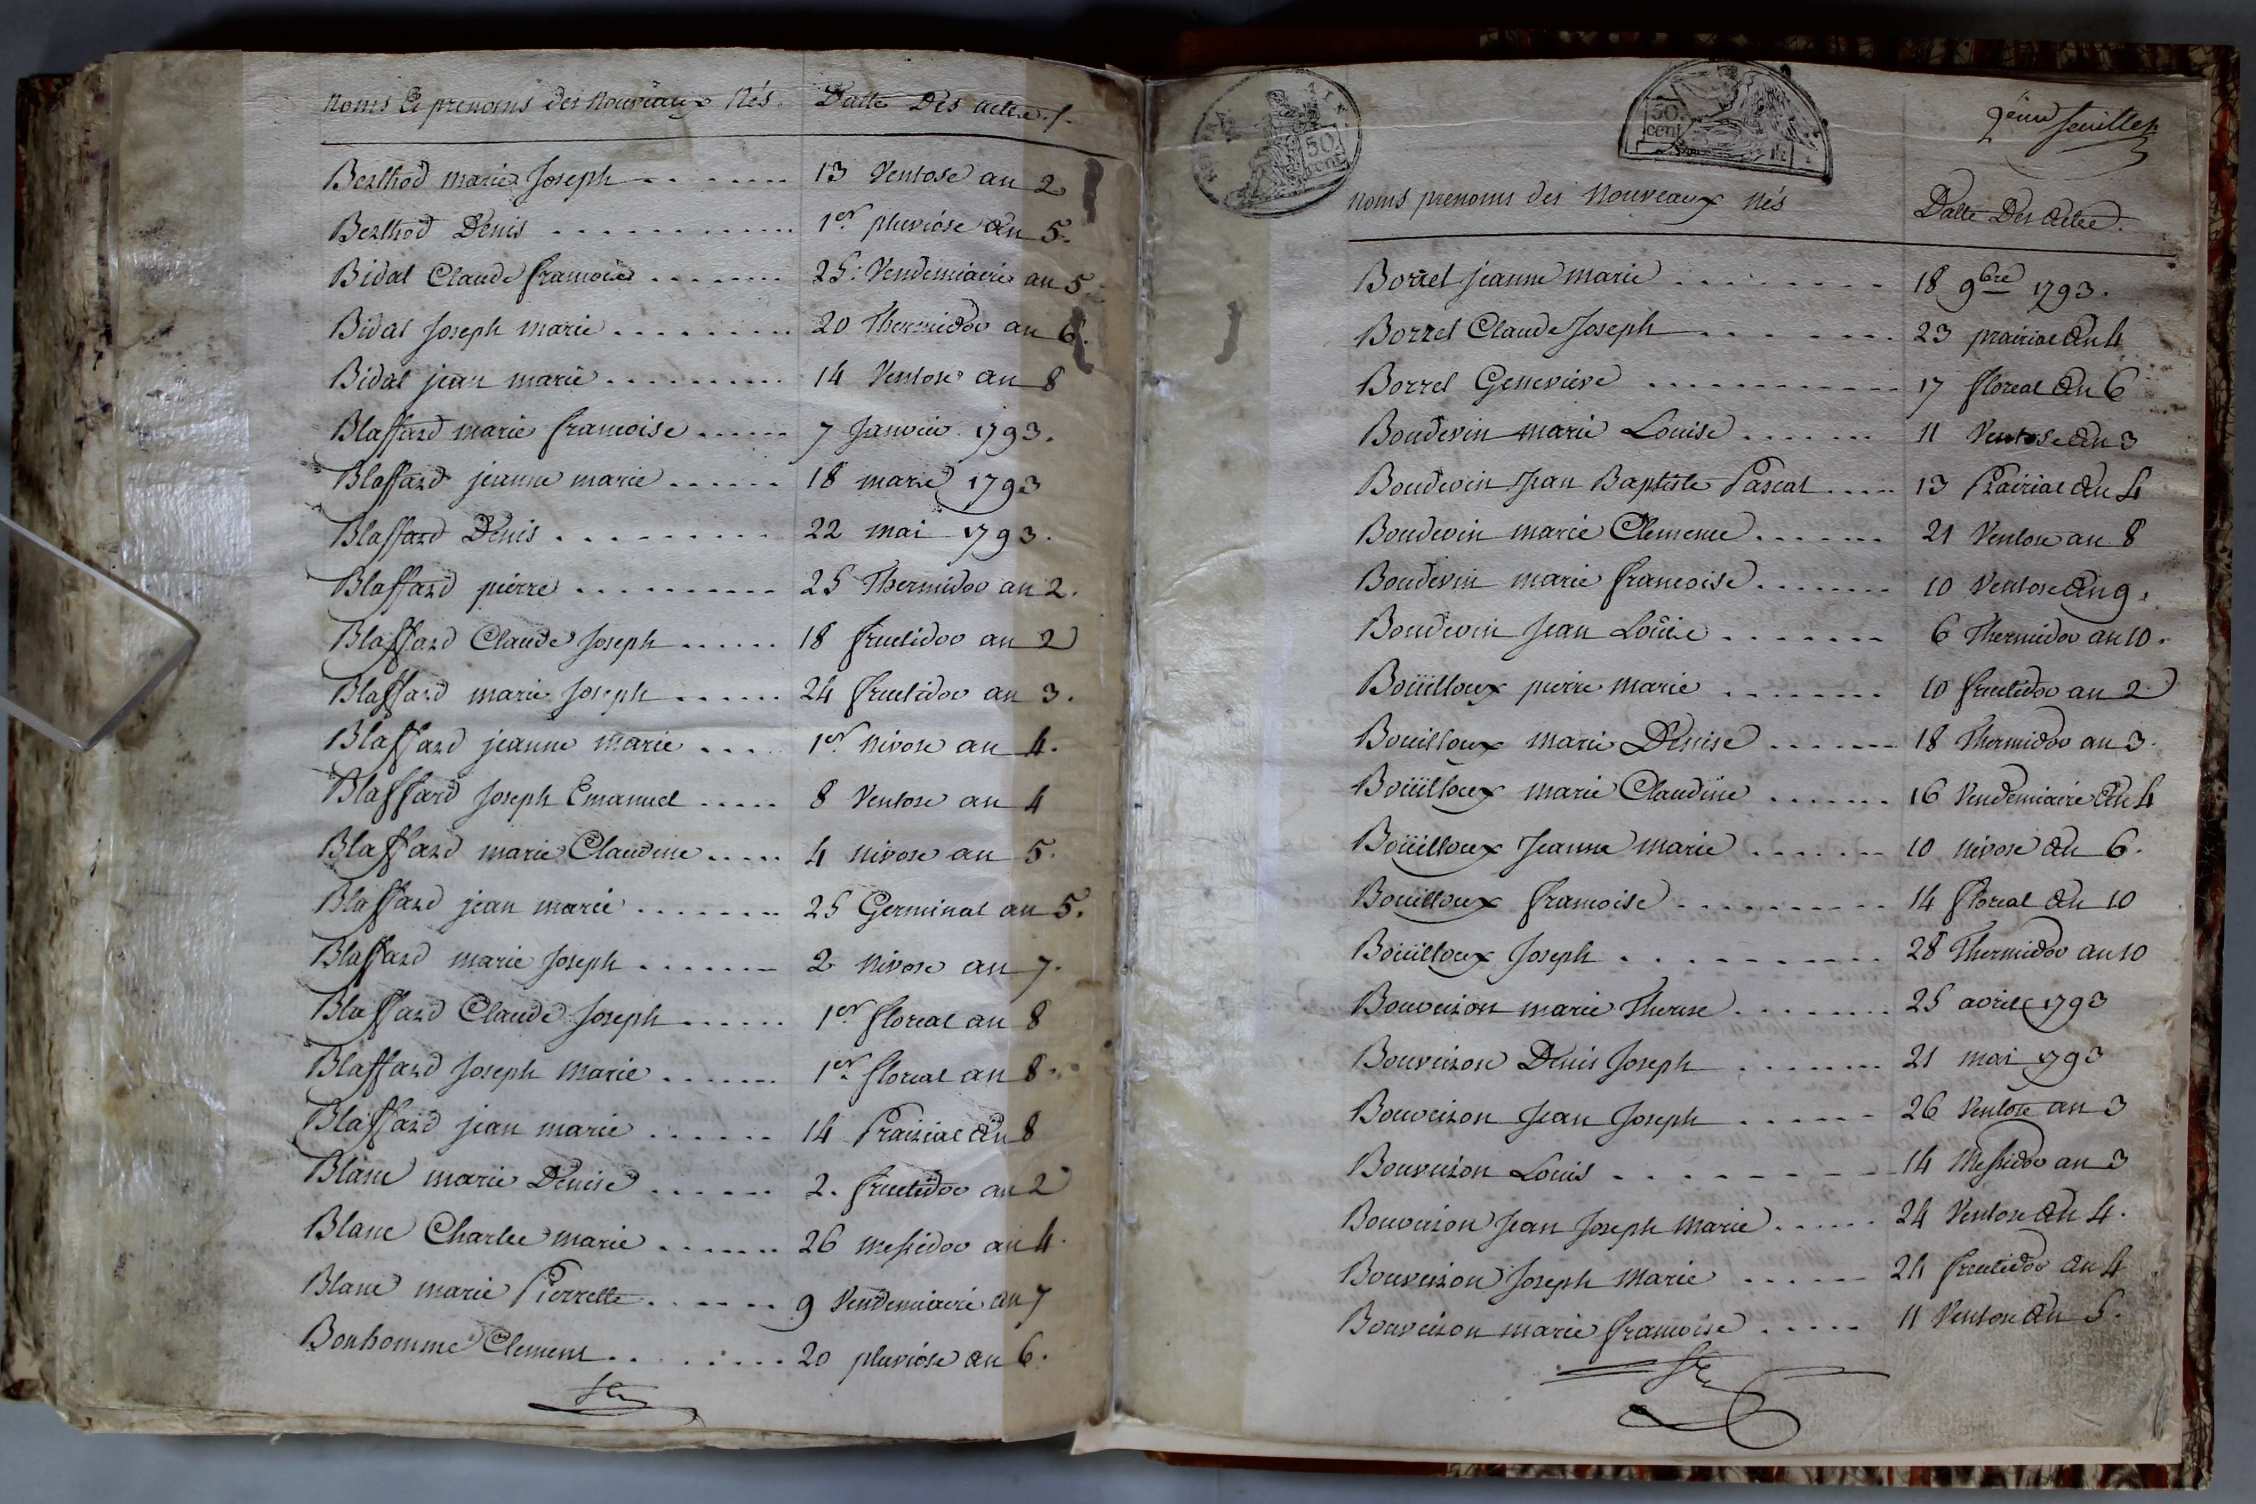 Noms & prenoms des Nouveaux Nés. Datte Des actes.
Berthod marie Joseph ....... 13 Ventose an 2
Berthod Denis ........... 1er. pluviôse an 5.
Bidal Claude francois ....... 25. Vendemiaire an 5
Bidal Joseph marie ........ 20 Thermidor an 6.
Bidal jean marie ......... 14 Ventose an 8
Blaffard marie francoise ...... 7 Janvier 1793.
Blaffard jeanne marie ...... 18 mars 1793
Blaffard Denis ......... 22 mai 1793.
Blaffard pierre .......... 25 Thermidor an 2.
Blaffard Claude Joseph ...... 18 fructidor an 2
Blaffard marie Joseph ...... 24 fructidor an 3.
Blaffard jeanne marie .... 1er. nivose an 4.
Blaffard Joseph Emanuel ..... 8 Ventose an 4
Blaffard marie Claudine ..... 4 nivose an 5.
Blaffard jean marie ....... 25 Germinal an 5.
Blaffard marie Joseph ....... 2 nivose an 7.
Blaffard Claude Joseph ...... 1er. floreal an 8
Blaffard Joseph Marie ....... 1er. floreal an 8.
Blaffard jean marie ...... 14 Prairial an 8
Blanc marie Denise ...... 2. fructidor an 2
Blanc Charles marie ....... 26 messidor an 4.
Blanc marie Pierrette ...... 9 Vendemiaire an 7
Bonhomme Clement ........ 20 pluviôse an 6.
50 cent
50. cent
2eme feuillet
Noms prenoms des Nouveaux Nés Datte Des Actes.
Borrel jeanne marie ........ 18 9bre 1793.
Borrel Claude Joseph ....... 23 prairial an 4
Borrel Genevieve ........... 17 floreal an 6
Boudevin marie Louise ....... 11 Ventose an 3
Boudevin Jean Baptiste Pascal ..... 13 Prairial an 4
Boudevin marie Clemence ....... 21 Ventose an 8
Boudevin marie francoise ....... 10 Ventose an 9.
Boudevin Jean Louis ....... 6 Thermidor an 10.
Boüilloux pierre marie ........ 10 fructidor an 2
Bouilloux marie Denise ....... 18 Thermidor an 3.
Boüilloux marie Claudine ....... 16 Vendemiaire an 4
Boüilloux Jeanne marie ....... 10 nivose an 6.
Bouilloux francoise ......... 14 floreal an 10
Boüilloux Joseph .......... 28 Thermidor an 10
Bouveizon marie Therese ........ 25 avril 1793
Bouveizon Denis Joseph ....... 21 mai 1793
Bouveizon Jean Joseph ..... 26 Ventose an 3
Bouveizon Louis ........ 14 Messidor an 3
Bouveizon Jean Joseph Marie ..... 24 Ventose an 4.
Bouveizon Joseph Marie ...... 24 fructidor an 4
Bouveizon marie francoise ..... 11 Ventose an 5.